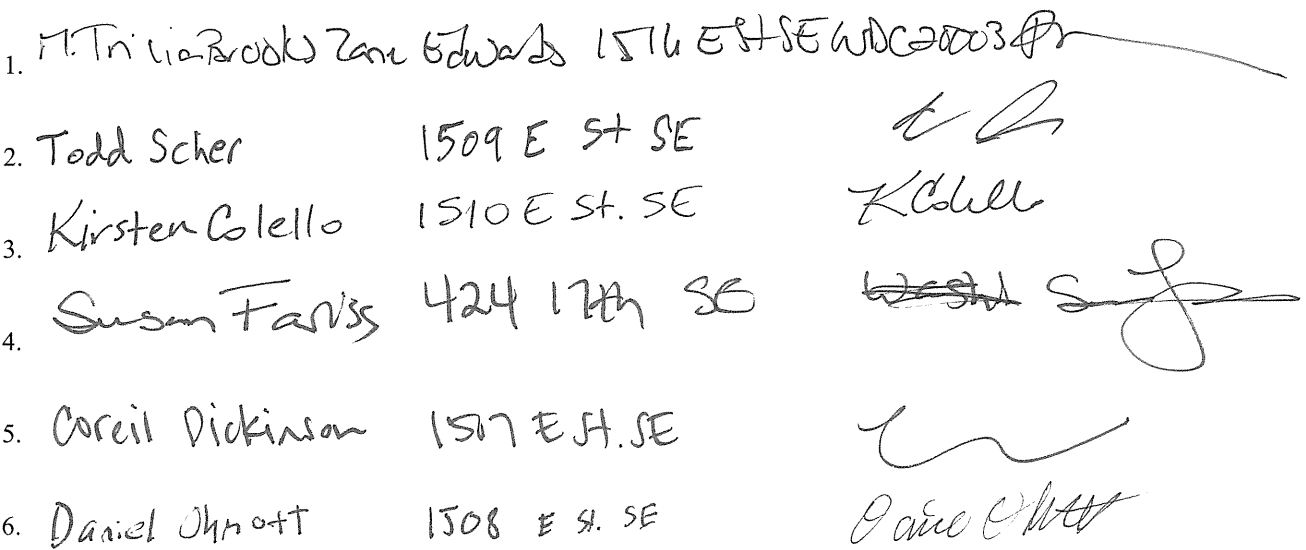 1. M. Tricia Brooks Zane Edwards 1516 E St SE WDC 20003
2. Todd Scher 1509 E St SE
3. Kirsten Colello 1510 E St. SE K Colello
4. Susan Fariss 424 17th SE
5. Coreil Dickinson 1507 E St. SE
6. Daniel Ohmott 1508 E St. SE